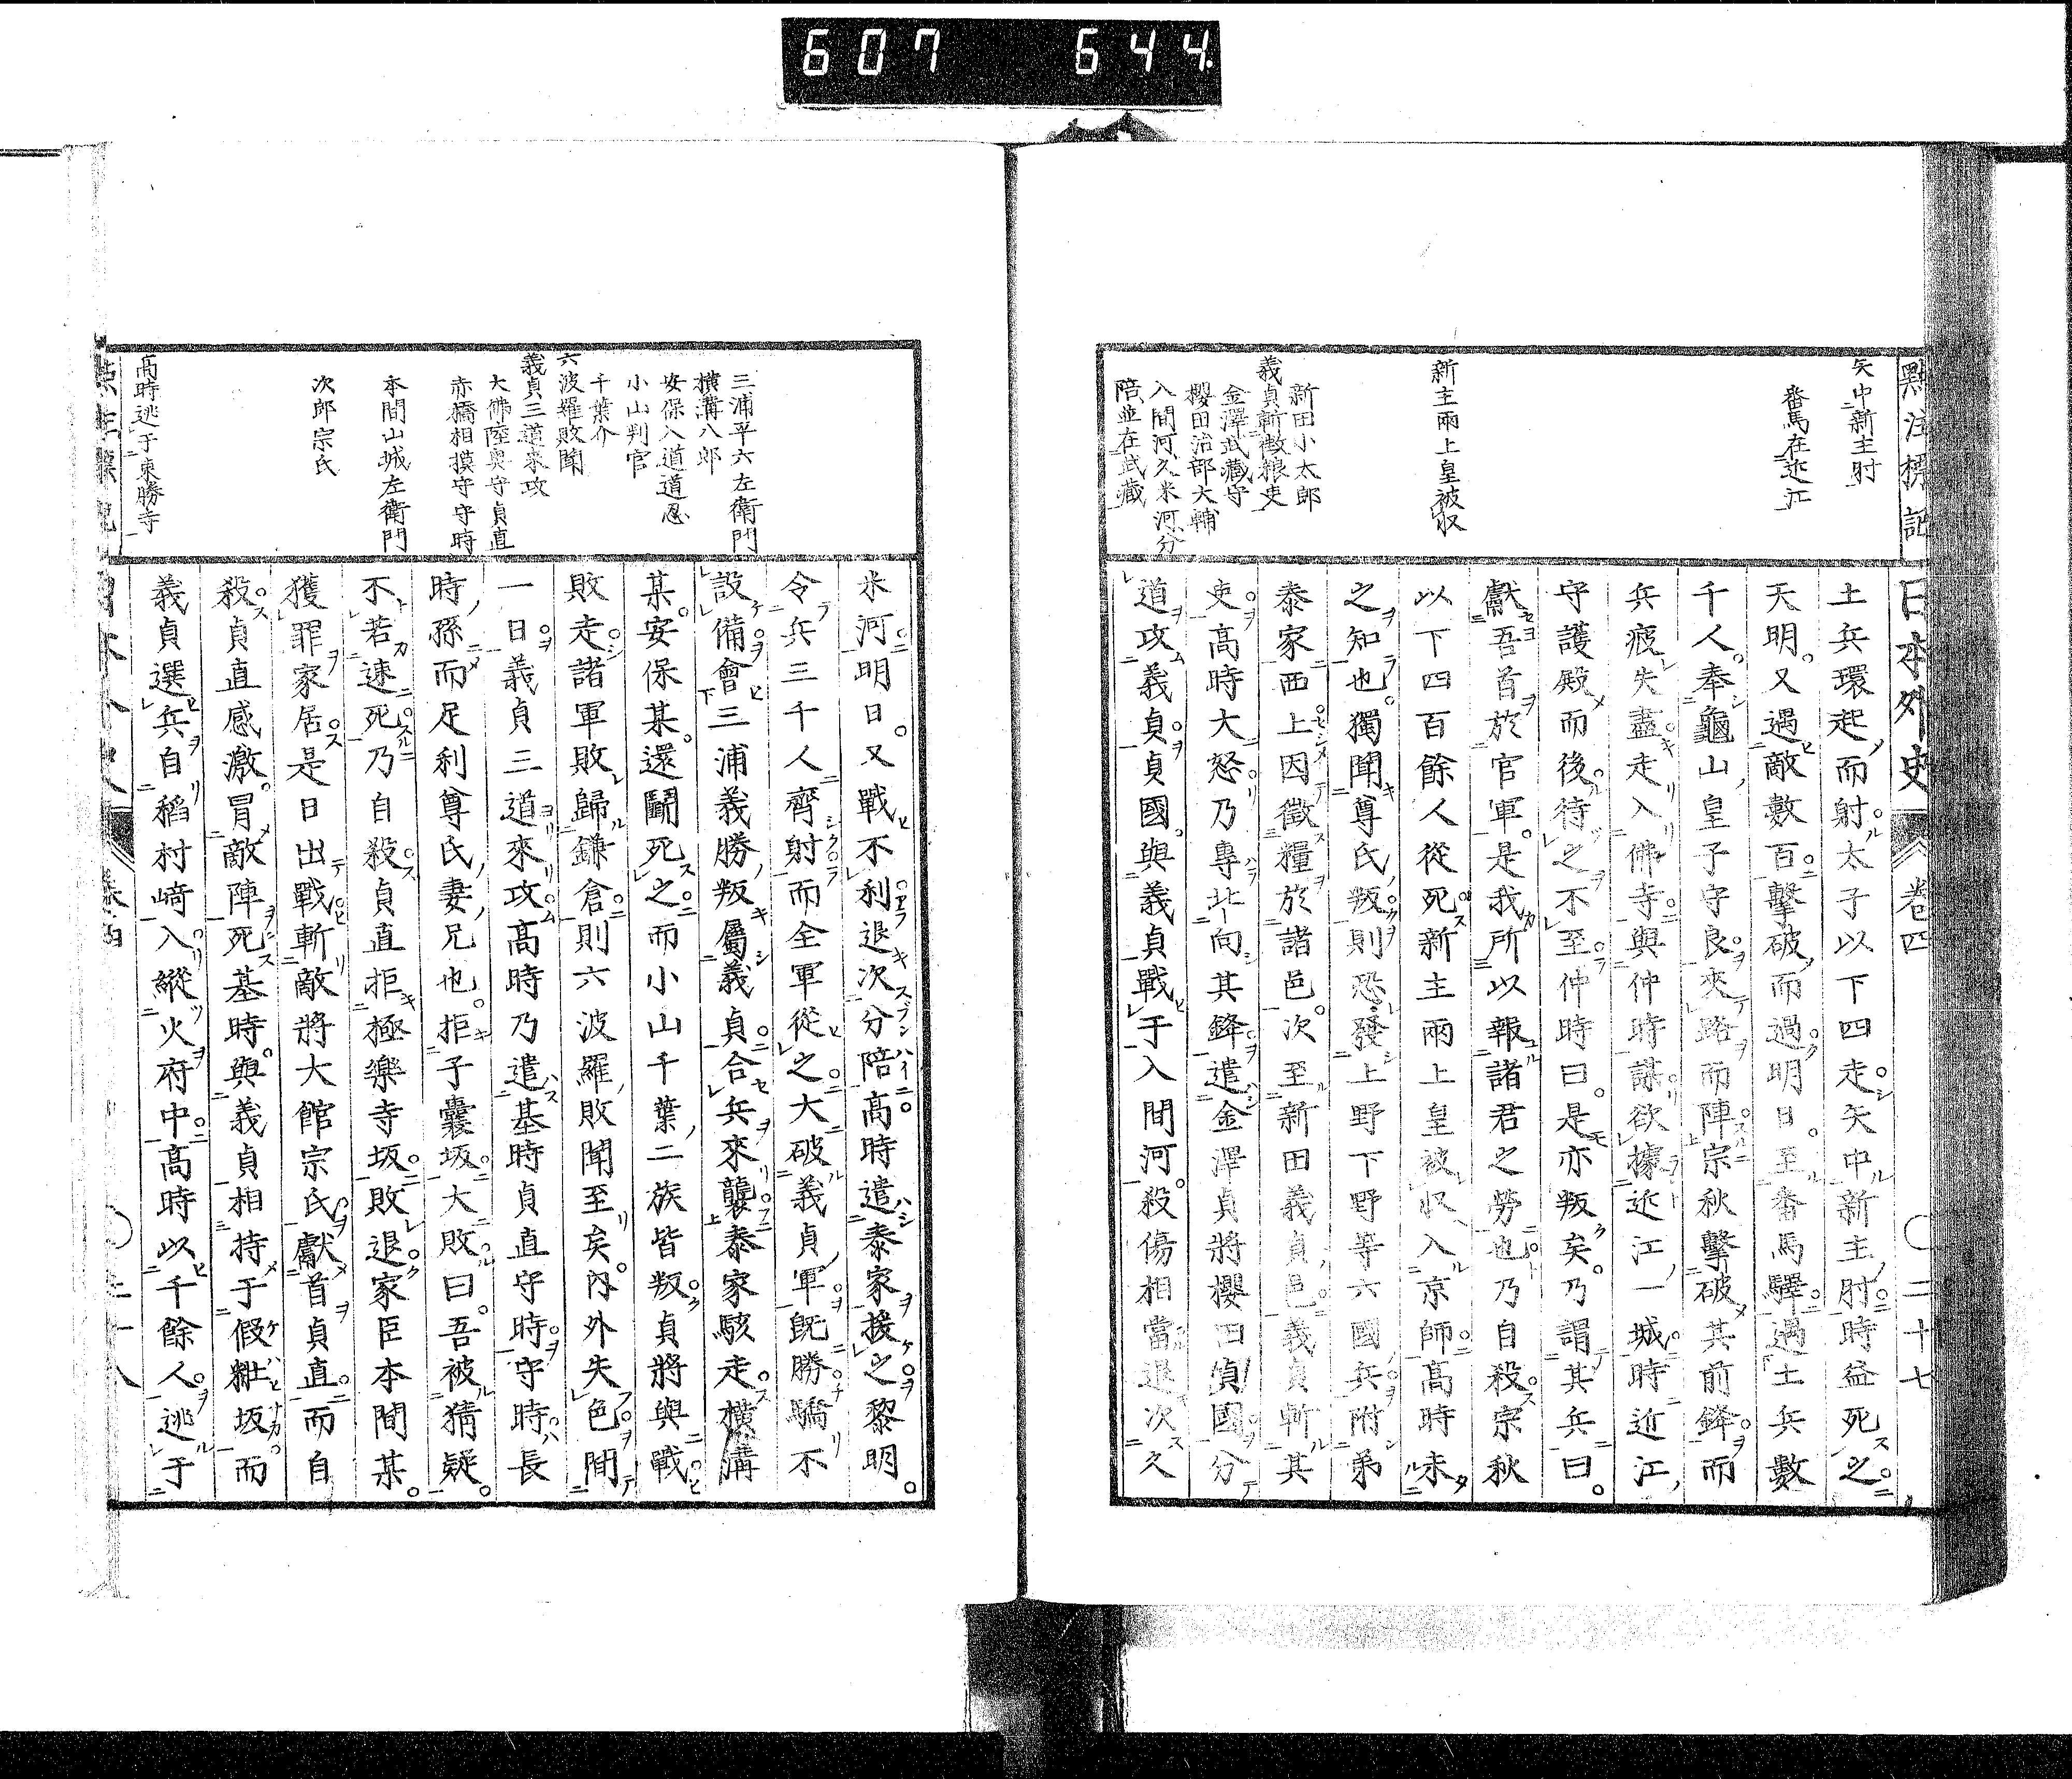 607 644
點注標記
日本外史 卷四 〇二十七
矢中新主肘
番馬在近江
新主兩上皇被収
新田小太郎
義貞斬徴粮吏
金澤武藏守
櫻田治部大輔
入間河久米河分
陪並在武藏
土兵環起而射太子以下四走矢中新主肘時益死之
天明又遇敵數百擊破而過明日至番馬驛遇土兵數
千人奉龜山皇子守良夾路而陣宗秋擊破其前鋒而
兵疲矢盡走入佛寺與仲時謀欲據近江一城時近江
守護殿而後待之不至仲時曰是亦叛矣乃謂其兵曰
獻吾首於官軍是我所以報諸君之勞也乃自殺宗秋
以下四百餘人從死新主兩上皇被収入京師高時未
之知也獨聞尊氏叛則恐發上野下野等六國兵附弟
泰家西上因徵糧於諸邑次至新田義貞邑義貞斬其
吏高時大怒乃專北向其鋒遣金澤貞將櫻田貞國分
道攻義貞貞國與義貞戰于入間河殺傷相當退次久
三浦平六左衛門
橫溝八郎
安保入道道忍
小山判官
千葉介
六波羅敗聞
義貞三道來攻
大佛陸奧守貞直
赤橋相摸守守時
本間山城左衛門
次郎宗氏
高時逃于東勝寺
米河明日又戰不利退次分陪高時遣泰家援之黎明
令兵三千人齊射而全軍從之大破義貞軍既勝驕不
設備會三浦義勝叛屬義貞合兵來襲泰家駭走橫溝
某安保某還鬭死之而小山千葉二族皆叛貞將與戰
敗走諸軍敗歸鎌倉則六波羅敗聞至矣內外失色間
一日義貞三道來攻高時乃遣基時貞直守時守時長
時孫而足利尊氏妻兄也拒子囊坂大敗曰吾被猜疑
不若速死乃自殺貞直拒極樂寺坂敗退家臣本間某
獲罪家居是日出戰斬敵將大館宗氏獻首貞直而自
殺貞直感激冒敵陣死基時與義貞相持于假粧坂而
義貞選兵自稻村﨑入縱火府中高時以千餘人逃于